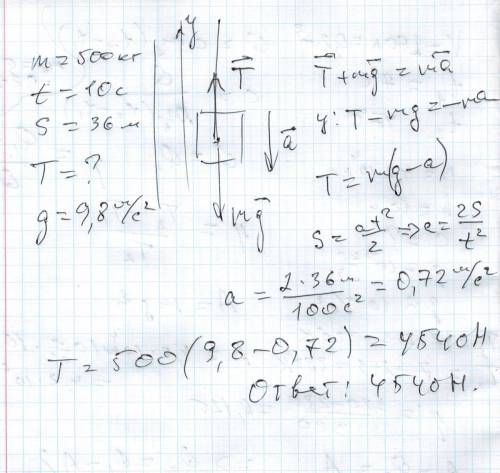 m = 500кг
t = 10с
S = 36 м
T = ?
g = 9,8 м/с²
y
T⃗
a⃗
mg⃗
T⃗ + mg⃗ = ma⃗
y: T - mg = -ma
T = m(g - a)
S = at²/2 => a = 2S/t²
a = 2·36м/100с² = 0,72 м/с²
T = 500(9,8 - 0,72) = 4540Н
Ответ: 4540Н.